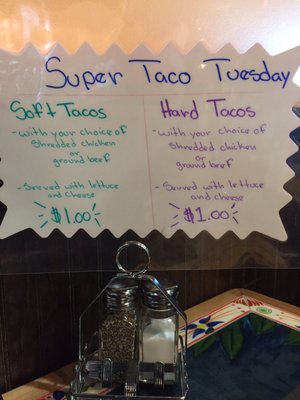 Super Taco Tuesday
Soft Tacos
-with your choice of
shredded chicken
or
ground beef
-Served with lettuce
and cheese
$1.00
Hard Tacos
-with your choice of
shredded chicken
or
ground beef
-Served with lettuce
and cheese
$1.00